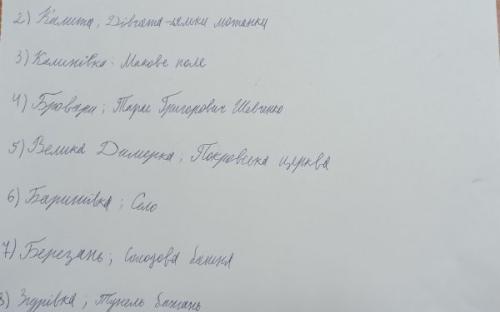 2) Калита; Дівчата-ляльки мотанки
3) Калинівка: Макове поле
4) Бровари; Тарас Григорович Шевченко
5) Велика Димерка; Покровська церква
6) Баришівка; Село
7) Березань; Силосова башня
8) Згурівка; Тунель бажань